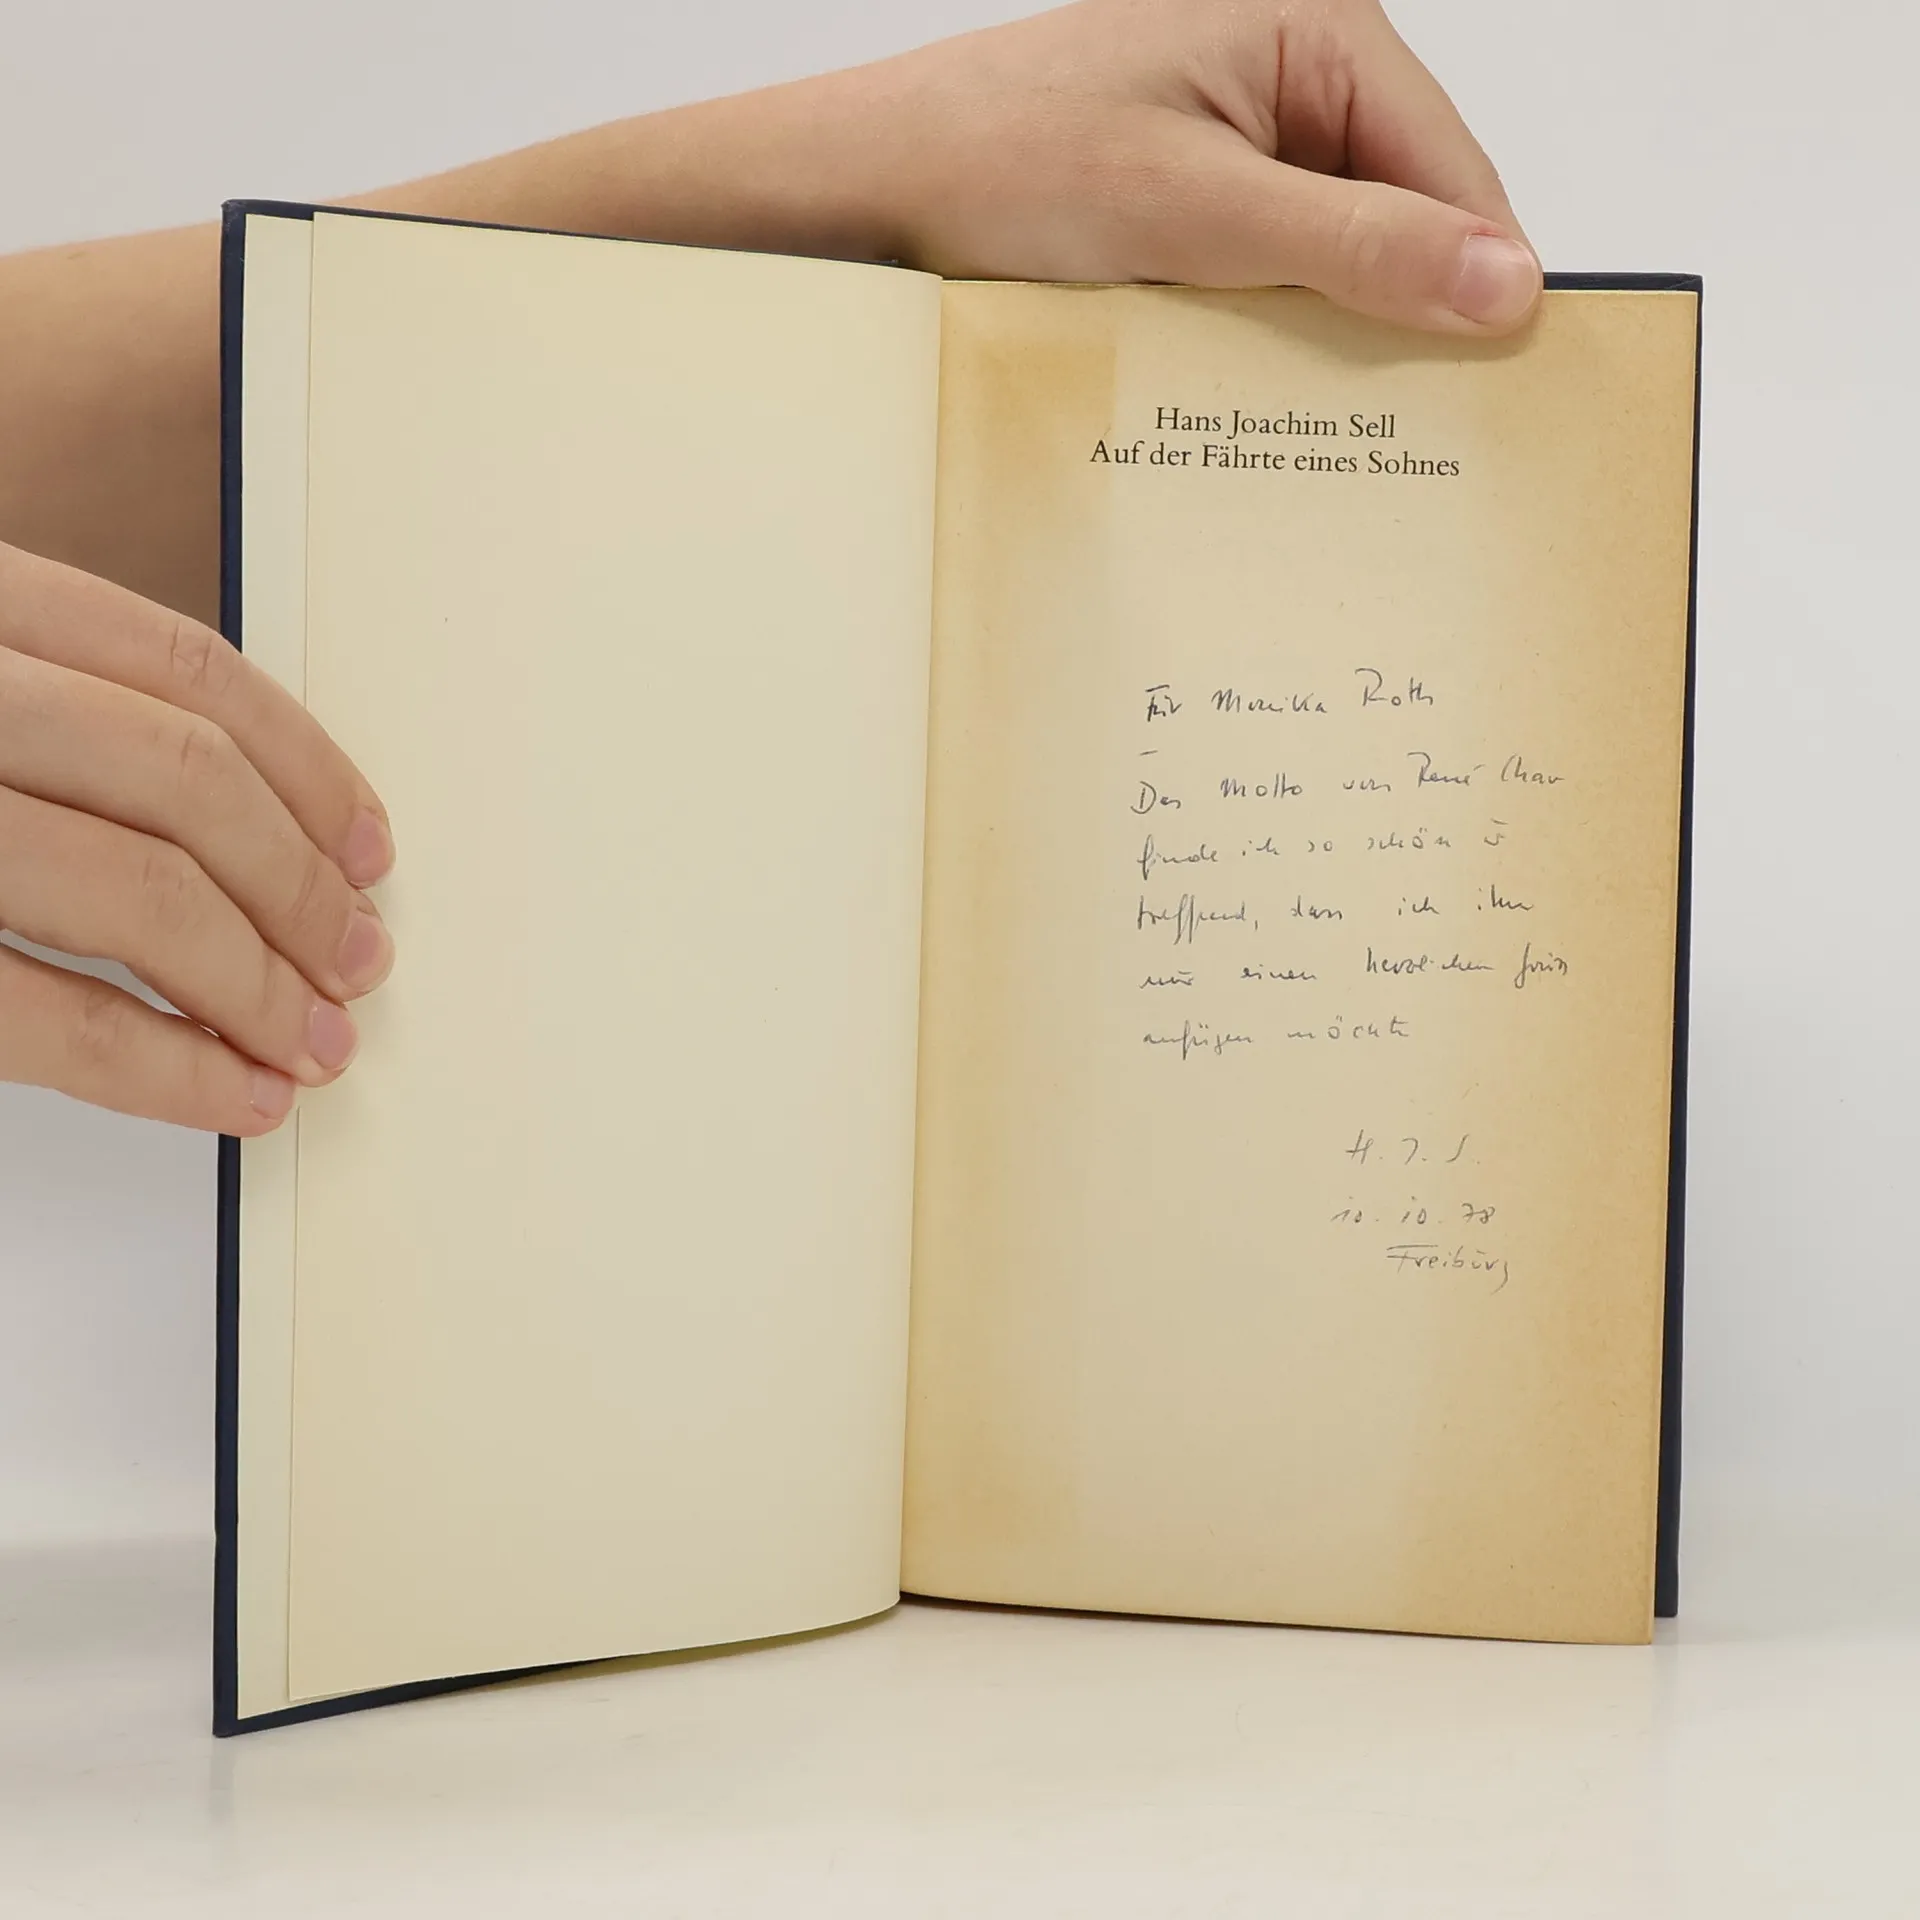 Hans Joachim Sell
Auf der Fährte eines Sohnes
Für Monika Roth
–
Das Motto von René Char
finde ich so schön u
treffend, dass ich ihm
nur einen herzlichen Gruß
anfügen möchte
H. J. S.
10. 10. 78
Freiburg